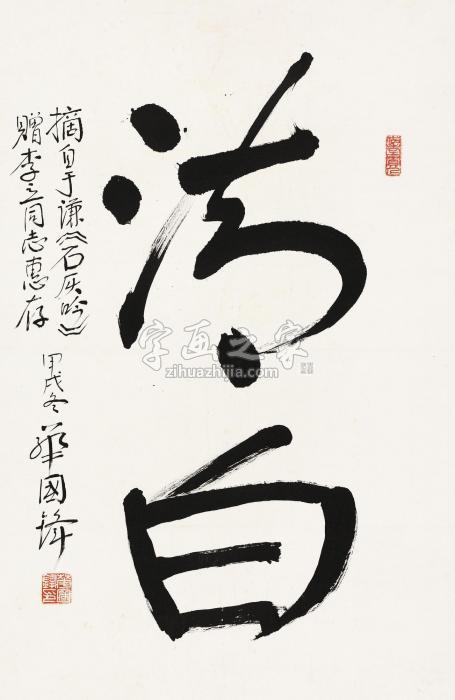 清白
摘自于谦《石灰吟》
赠李之同志惠存
甲戌冬 華國鋒
字画之家
zihuazhijia.com